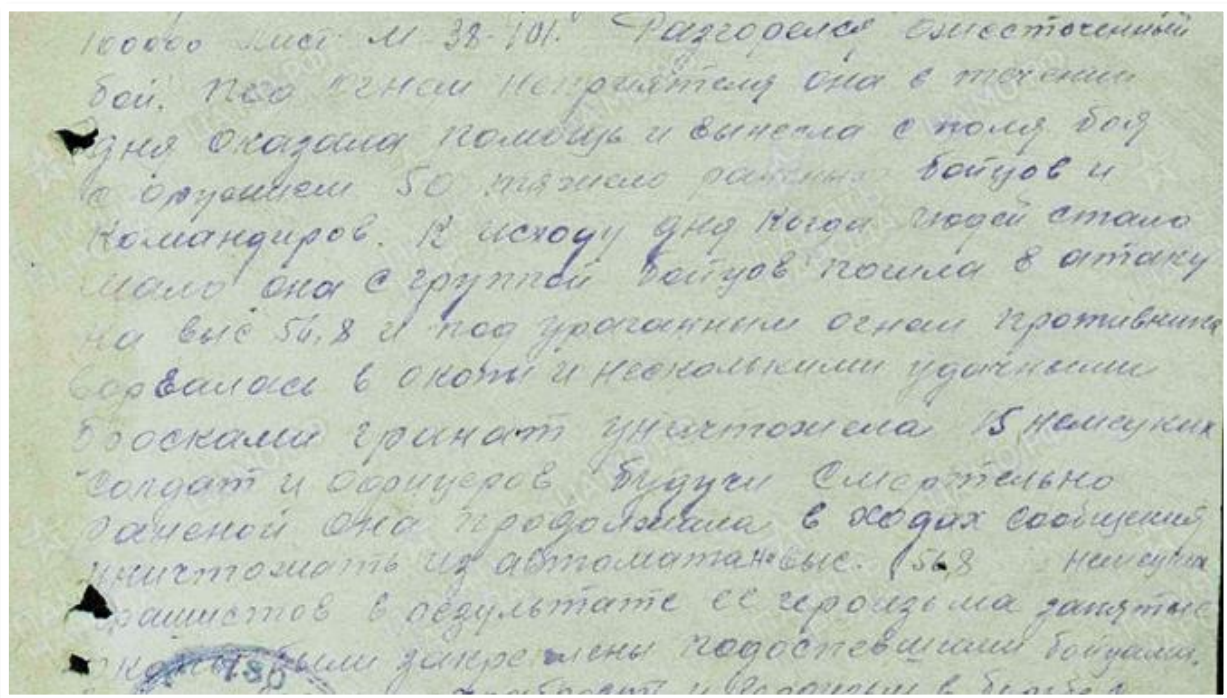 100000 лист М-38-101. Разгорелся ожесточенный
бой. Под огнем неприятеля она в течении
дня оказала помощь и вынесла с поля боя
с оружием 50 тяжело раненых бойцов и
командиров. К исходу дня когда людей стало
мало она с группой бойцов пошла в атаку
на выс 56,8 и под ураганным огнем противника
ворвалась в окопы и несколькими удачными
бросками гранат уничтожила 15 немецких
солдат и офицеров будучи смертельно
раненой она продолжала в ходах сообщения
уничтожать из автомата на выс. 56,8 немецких
фашистов в результате ее героизьма занятые
окопы были закреплены подоспевшими бойцами.